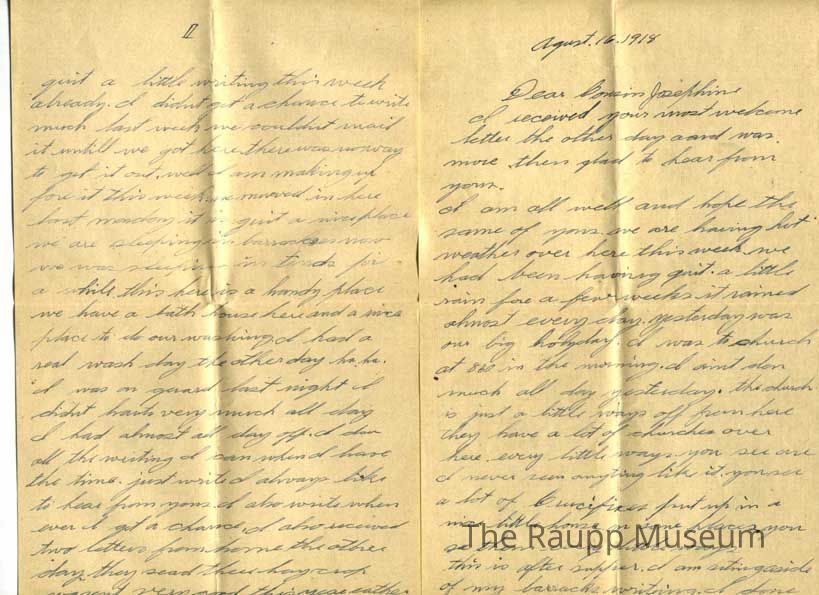 Agust. 16. 1918
Dear Cousin Josephine
I received your most welcome
letter the other day aand was
more then glad to hear from
yous.
I am all well and hope the
same of yous. we are having hot
weather over here this week. we
had been having quit. a little
rain fore a few weeks it rained
almost every day. yesterday was
our big holyday. I was to church
at 8 in the morning. I aint don
much all day yesterday. the church
is just a little ways off from here
they have a lot of churches over
here. every little ways you see one
I never seen anyting like it. you see
a lot of Crucifixes put up in a
nice little some places you
this is after supper. I am siting side
of my barracks writing. I done
II
quit a little writing this week
already. I didnt get a chance to write
much last week we couldnt mail
it untill we got here. there was noway
to get it out. well I am making up
fore it this week. we moved in here
last monday it is quit a nice place
we are sleeping in barrackes now
we was sleeping in tents for
a while. this here is a handy place
we have a bath house here and a nice
place to do our washing. I had a
real wash day the other day ha. ha.
I was on guard last night I
didnt have very much all day
I had almost all day off. I don
all the writing I can when I have
the time. just write I always like
to hear from yous. I also write when
ever I get a chance. I also received
two letters from home the other
day, they sead there hay crop
wasent very good this year
The Raupp Museum